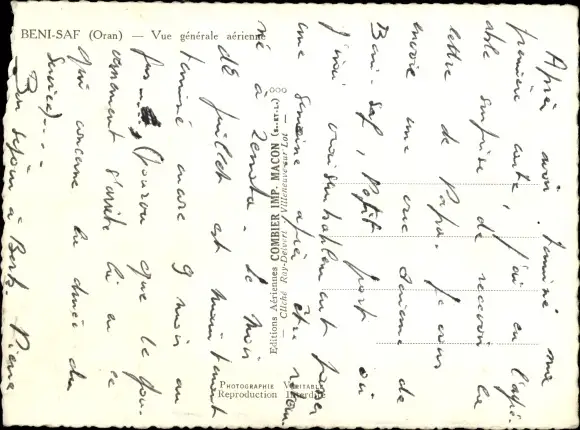 BENI-SAF (Oran) — Vue générale aérienne
Editions Aériennes COMBIER IMP. MACON (S.-ET-L.)
— Cliché Ray-Delvert — Villeneuve-sur-Lot —
PHOTOGRAPHIE VÉRITABLE
Reproduction Interdite
Après avoir terminé ma
première carte, j'ai eu l'agré-
able surprise de recevoir la
lettre de Papa. Je vous
envoie une vue aérienne de
Beni-Saf, petit port où
j'irai vraisemblablement passer
une semaine après être
à Zenata. Le mois
de juillet est maintenant
terminé encore 9 mois au
plus (pourvu que le gou-
vernement s'arrête là en ce
qui concerne la durée du
service)...
Bon séjour à Pierre